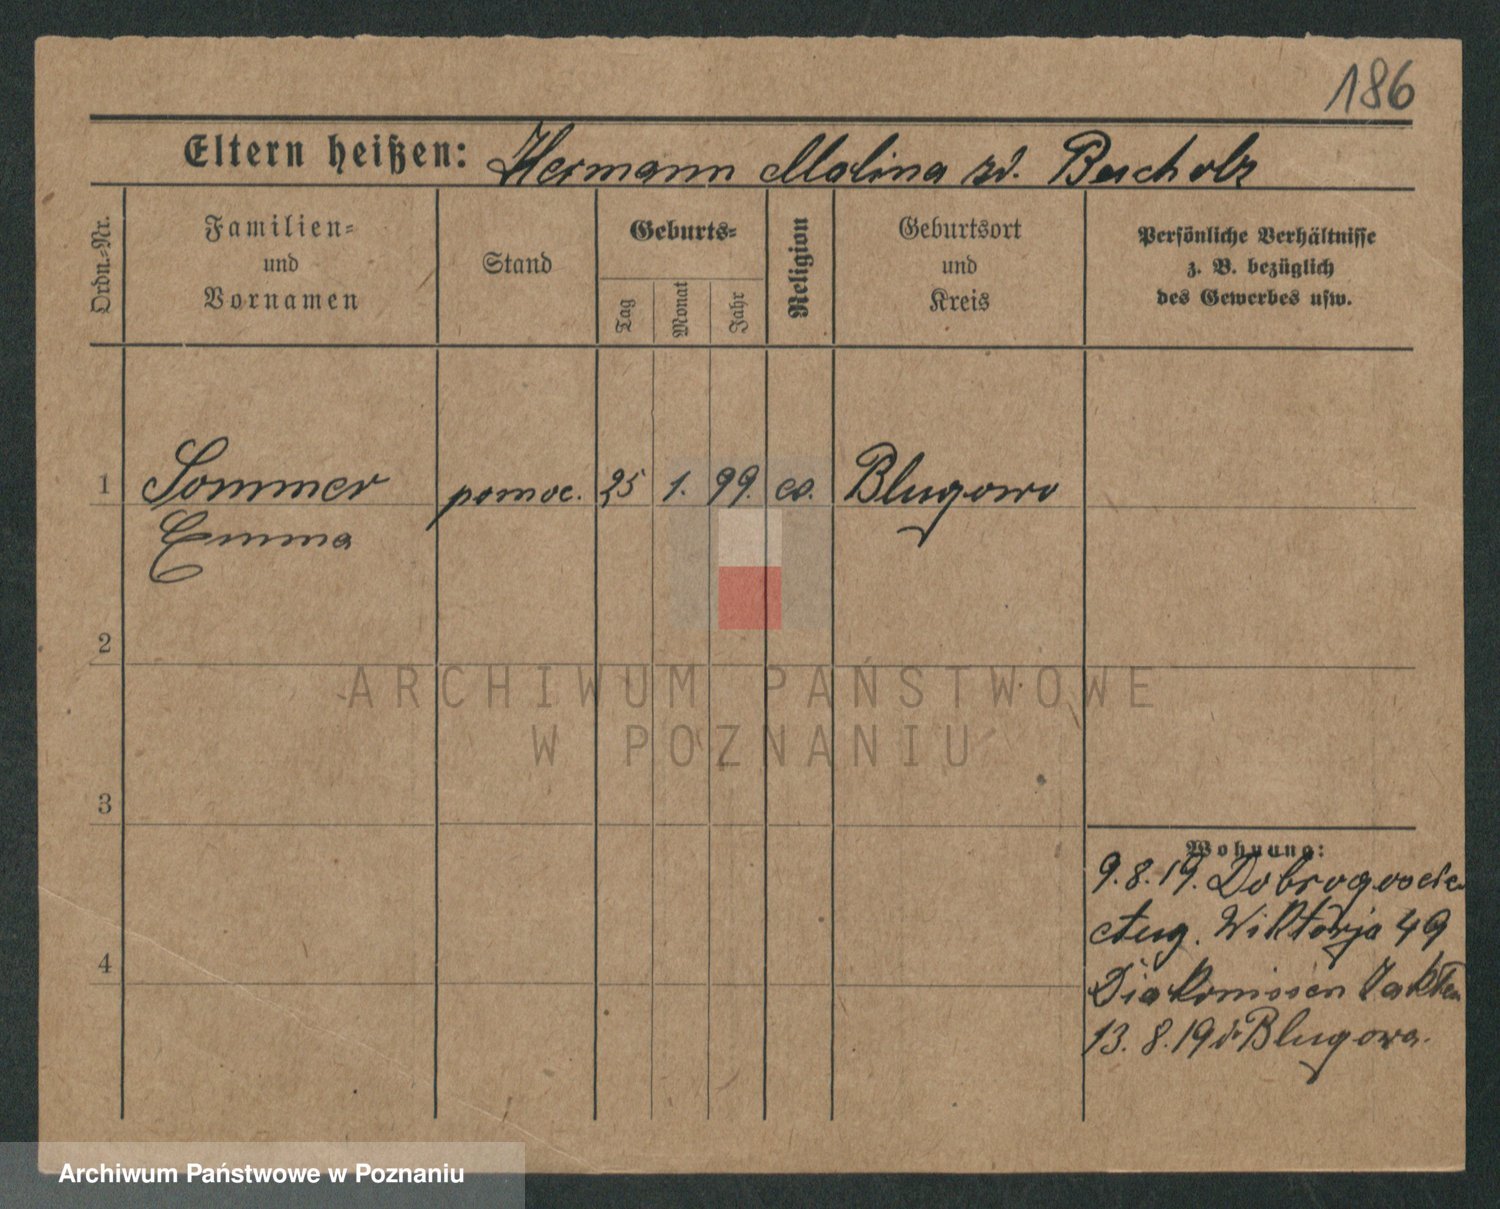 186
Eltern heißen: Hermann Malina zd. Bucholz
Ordn.-Nr.
Familien-
und
Vornamen
Stand
Geburts-
Tag
Monat
Jahr
Religion
Geburtsort
und
Kreis
Persönliche Verhältnisse
z. B. bezüglich
des Gewerbes usw.
1 Sommer pomoc. 25 1. 99. ew. Blugowo
Emma
2
ARCHIWUM PAŃSTWOWE
W POZNANIU
3
Wohnung:
9.8.19. Dobrogosc
Aug. Wiktorja 49
4
Diakonissen
13. 8. 19 Blugowa.
Archiwum Państwowe w Poznaniu